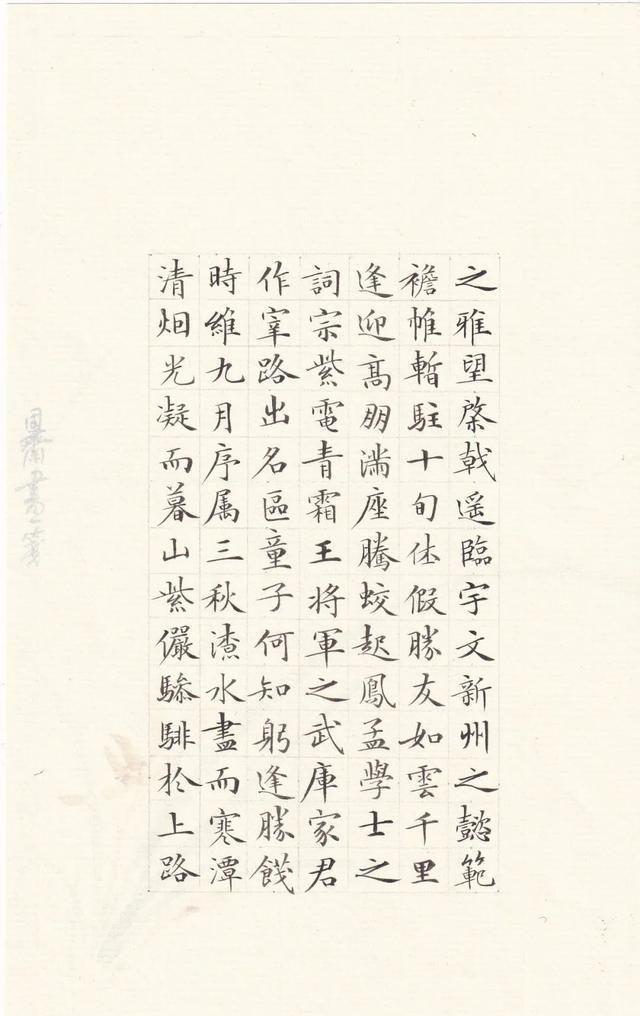 之雅望棨戟遥臨宇文新州之懿範
襜帷暫駐十旬休假勝友如雲千里
逢迎高朋滿座騰蛟起鳳孟學士之
詞宗紫電青霜王将軍之武庫家君
作宰路出名區童子何知躬逢勝餞
時維九月序属三秋潦水盡而寒潭
清烟光凝而暮山紫儼驂騑於上路